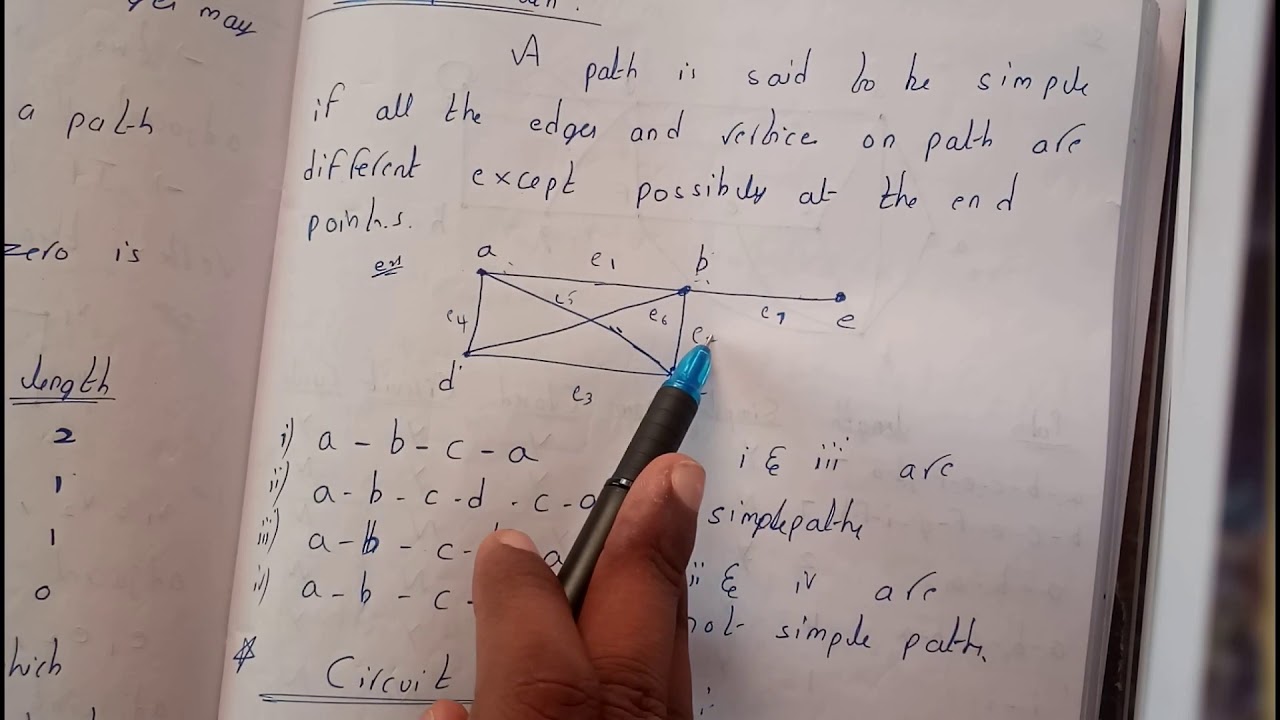 may
a path
zero is
length
2
1
1
0
hich
A path is said to be simple
if all the edges and vertice on path are
different except possibly at the end
points.
ex
a e1 b
e5 e6 e7 e
e4
d e3
i) a - b - c - a
ii) a - b - c - d - c - a
iii) a - b - c -
iv) a - b - c -
i & iii are
simple paths
ii & iv are
not simple path.
Circuit